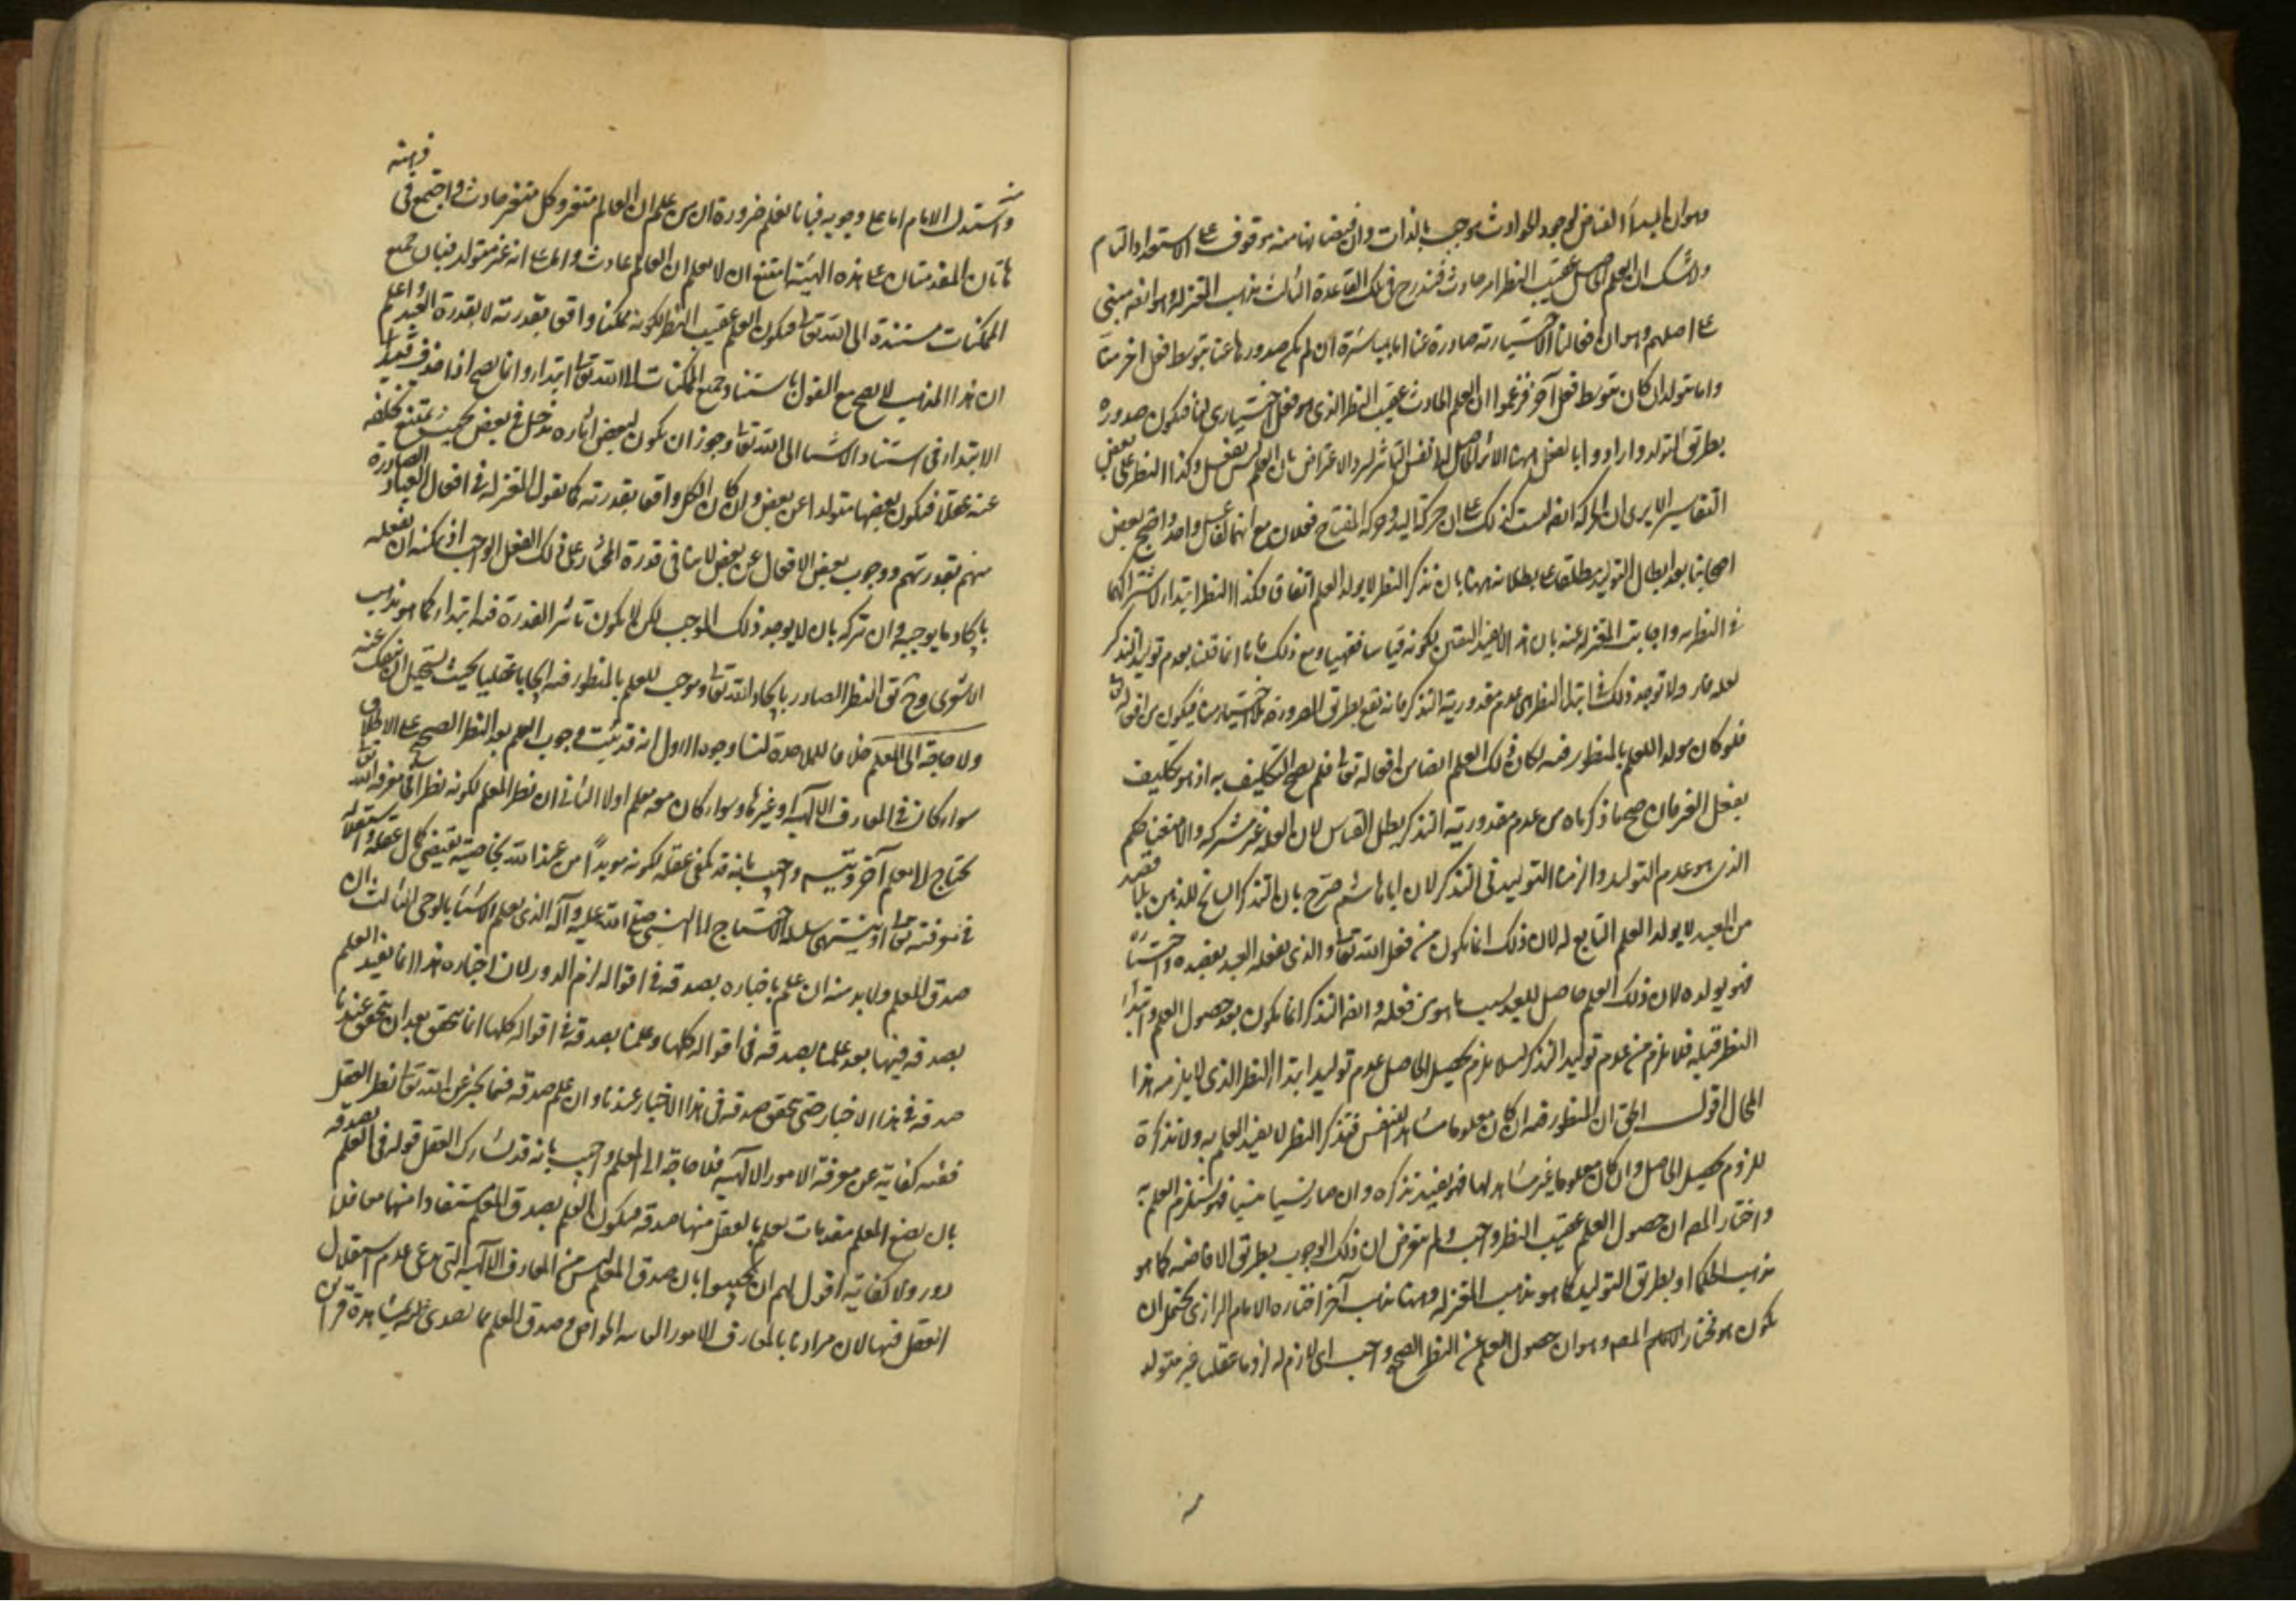 وهو ان المبدأ الفياض لوجود الحوادث موجب بالذات وان فيضانها منه موقوف على الاستعداد التام
ولا شك ان العلم الحاصل عقيب النظر امر حادث فيندرج في تلك القاعدة الثالث مذهب المعتزلة وهو انه مبني
على اصلهم وهو ان افعالنا الاختيارية صادرة عنا اما مباشرة ان لم يكن صدورها عنا بتوسط فعل اخر منا
واما تولدا ان كان بتوسط فعل آخر فزعموا ان العلم الحادث عقيب النظر الذي هو فعل اختياري لنا فيكون صدوره
بطريق التولد وارادوا بالفعل ههنا الاثر الحاصل لا نفس التأثير ليرد الاعتراض بان العلم ليس بفعل وكذا النظر على بعض
التفاسير الا يرى ان الحركة ايضا ليست كذلك على ان حركة اليد وحركة المفتاح فعلان مع انهما لفاعل واحد واحتج بعض
اصحابنا بعد ابطال التوليد مطلقا على بطلانه ههنا بان تذكر النظر لا يولد العلم اتفاقا فكذا النظر ابتداء لاشتراكهما
في النظرية واجابت المعتزلة عنه بان هذا لا يفيد اليقين لكونه قياسا فقهيا ومع ذلك فانا انما قلنا بعدم توليد التذكر
لعلة فارقة لا توجد ذلك في ابتداء النظر هي عدم مقدورية التذكر فانه يقع بطريق الضرورة بلا اختيار منا فيكون من افعاله تعالى
فلو كان مولدا للعلم بالمنظور فيه لكان ذلك العلم ايضا من افعاله تعالى فلم يصح التكليف به اذ هو تكليف
بفعل الغير فان صح ما ذكرناه من عدم مقدورية التذكر بطل القياس لان العلة غير مشتركة والا منعنا حكم
الذي هو عدم التوليد والتزمنا التوليد في التذكر لان ابا هاشم صرح بان التذكر السانح للذهن بلا قصد
من العبد لا يولد العلم التابع له لان ذلك انما يكون من فعل الله تعالى والذي يفعله العبد بقصده واختياره
فهو يولده لان ذلك العلم حاصل للعبد بسبب ما هو من فعله وايضا التذكر انما يكون بعد حصول العلم وابتداء
النظر قبله فلا يلزم من عدم توليد التذكر لئلا يلزم تحصيل الحاصل عدم توليد ابتداء النظر الذي لا يلزمه هذا
المحال اقول الحق ان المنظور فيه ان كان معلوما مشاهدا للنفس فتذكر النظر لا يفيد العلم به ولا تذكره
للزوم تحصيل الحاصل وان كان معلوما غير مشاهد لها فهو يفيد تذكره وان صار نسيا منسيا فهو يستلزم العلم به
واختار المصر ان حصول العلم عقيب النظر واجب ولم يتعرض ان ذلك الوجوب بطريق الافاضة كما هو
مذهب الحكماء او بطريق التوليد كما هو مذهب المعتزلة وههنا مذهب آخر اختاره الامام الرازي يحتمل ان
يكون هو مختار المصر وهو ان حصول العلم عن النظر الصحيح واجب اي لازم له لزوما عقليا غير متولد
منه
واستدل الامام اما على وجوبه فبانا نعلم ضرورة ان من علم ان العالم متغير وكل متغير حادث واجتمع في ذهنه
هاتان المقدمتان على هذه الهيئة امتنع ان لا يعلم ان العالم حادث واما على انه غير متولد فبان جميع
الممكنات مستندة الى الله تعالى فيكون العلم عقيب النظر لكونه ممكنا واقعا بقدرته لا بقدرة العبد واعلم
ان هذا المذهب لا يصح مع القول باستناد جميع الممكنات الى الله تعالى ابتداء وانما يصح اذا حذف قيد
الابتداء في استناد الاشياء الى الله تعالى وجوز ان يكون لبعض آثاره مدخل في بعض بحيث يمتنع تخلفه
عنه عقلا فيكون بعضها متولدا عن بعض وان كان الكل واقعا بقدرته كما يقول المعتزلة في افعال العباد الصادرة
منهم بقدرتهم ووجوب بعض الافعال عن بعض لا ينافي قدرة المختار على ذلك الفعل الواجب اذ يمكنه ان يفعله
بايجاد ما يوجبه وان يتركه بان لا يوجد ذلك الموجب لكن لا يكون تأثير القدرة فيه ابتداء كما هو مذهب
الاشعري وح يق النظر الصادر بايجاد الله تعالى وموجب للعلم بالمنظور فيه ايجابا عقليا بحيث يستحيل ان ينفك عنه
ولا حاجة الى المعلم خلافا للملاحدة لنا وجوه الاول انه قد ثبت وجوب العلم بعد النظر الصحيح على الاطلاق
سواء كان في المعارف الالهية او غيرها وسواء كان معه معلم اولا الثاني ان نظر المعلم لكونه نظرا في معرفة الله تعالى
يحتاج الى معلم آخر ويتسلسل واجيب بانه قد يكفي عقله لكونه مؤيدا من عند الله بخاصية تقتضي كمال عقله واستقلاله
في معرفته تعالى او ينتهي سلسلة الاحتياج الى النبي صلى الله عليه وآله الذي يعلم الاشياء بالوحي الثالث ان
صدق المعلم ولا بد منه ان علم باخباره بصدقه في اقواله لزم الدور لان اخباره هذا انما يفيد العلم
بصدقه فيها بعد علمنا بصدقه في اقواله كلها وعلمنا بصدقه في اقواله كلها انما يتحقق بعد ان يتحقق عندنا
صدقه في هذا الاخبار حتى يتحقق صدقه في هذا الاخبار عندنا وان علم صدقه فيما يخبر عن الله تعالى بنظر العقل
ففيه كفاية عن معرفة الامور الالهية فلا حاجة الى المعلم واجيب بانه قد يشارك العقل قوله في العلم بصدقه
بان يضع المعلم مقدمات يعلم بالعقل منها صدقه فيكون العلم بصدق المعلم مستفادا منهما معا فلا
دور ولا كفاية اقول لهم ان يجيبوا بان صدق المعلم ليس من المعارف الالهية التي ندعي عدم استقلال
العقل فيها لان مرادنا بالمعارف الامور الخواص وصدق المعلم مما يصدق بمشاهدة قرائن